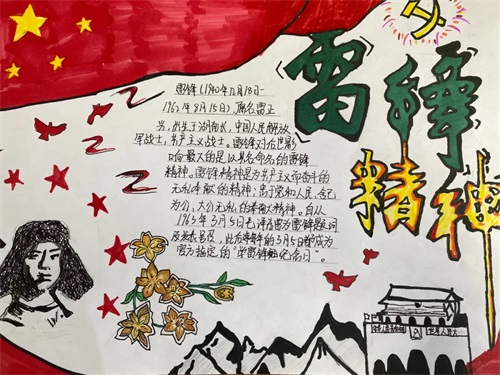 雷锋
精神
雷锋(1940年12月18日-
1962年8月15日),原名雷正
兴,出生于湖南长,中国人民解放
军战士,共产主义战士。雷锋对后世影
响最大的是以其名命名的雷锋
精神。雷锋精神是为共产主义而奋斗的
无私奉献的精神;忠于党和人民、舍己
为公,大公无私的奉献大精神。自从
1963年3月5日毛泽东为雷锋题词
发表号召,此后每年的3月5日都成为
官方指定的"学雷锋纪念日"。